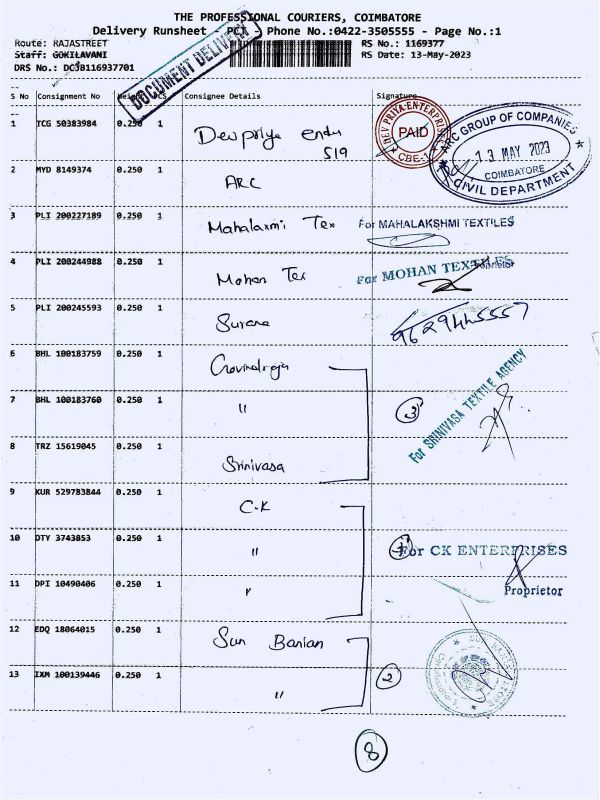 THE PROFESSIONAL COURIERS, COIMBATORE
Delivery Runsheet - PCT - Phone No.:0422-3505555 - Page No.:1
Route: RAJASTREET RS No.: 1169377
Staff: GOKILAVANI RS Date: 13-May-2023
DRS No.: DCJB116937701
DOCUMENT DELIVERY
S No Consignment No Weight PCS Consignee Details Signature
1 TCG 50383984 0.250 1 Devpriya enter 519
DEV PRIYA ENTERPRISES PAID CBE-1
ARC GROUP OF COMPANIES 13 MAY 2023 COIMBATORE CIVIL DEPARTMENT
2 MYD 8149374 0.250 1 ARC
3 PLI 200227189 0.250 1 Mahalaxmi Tex For MAHALAKSHMI TEXTILES
4 PLI 200244988 0.250 1 Mohan Tex For MOHAN TEXTILES
5 PLI 200245593 0.250 1 Surana 9629445557
6 BHL 100183759 0.250 1 Govindraja
7 BHL 100183760 0.250 1 " 3 For SRINIVASA TEXTILE AGENCY
8 TRZ 15619045 0.250 1 Srinivasa
9 KUR 529783844 0.250 1 C.K
10 DTY 3743853 0.250 1 " For CK ENTERPRISES
11 DPI 10490406 0.250 1 " Proprietor
12 EDQ 18064015 0.250 1 Sun Banian
13 IXM 100139446 0.250 1 " 2
8